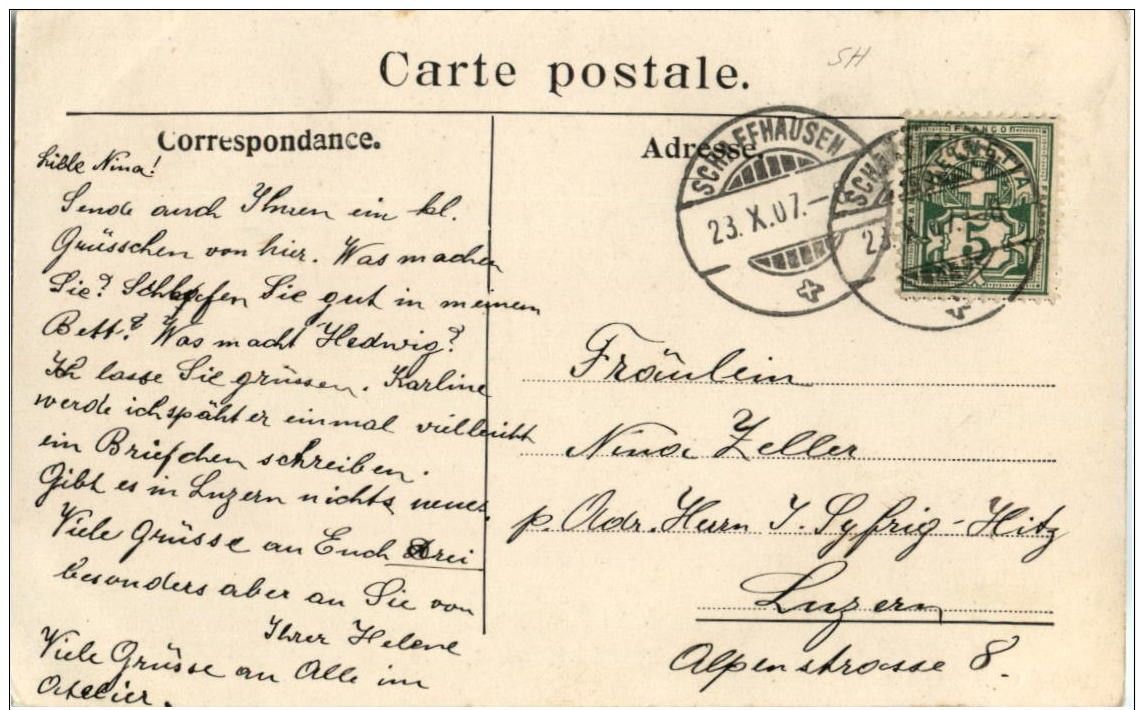 SH
Carte postale.
Correspondance.
Liebe Nina!
Sende auch Ihnen ein kl.
Grüsschen von hier. Was machen
Sie? Schlafen Sie gut in meinem
Bett? Was macht Hedwig?
Ich lasse Sie grüssen. Karline
werde ich spähter einmal vielleicht
ein Briefchen schreiben.
Gibt es in Luzern nichts neues.
Viele Grüsse an Euch Drei
besonders aber an Sie von
Ihrer Helene
Viele Grüsse an Alle im
Atelier.
Adresse.
SCHAFFHAUSEN
23.X.07.—
SCHA
23.
FRANCO
HELVETIA
5
Fräulein
Nina Zeller
p. Adr. Herrn J. Syfrig-Hitz
Luzern
Alpenstrasse 8.